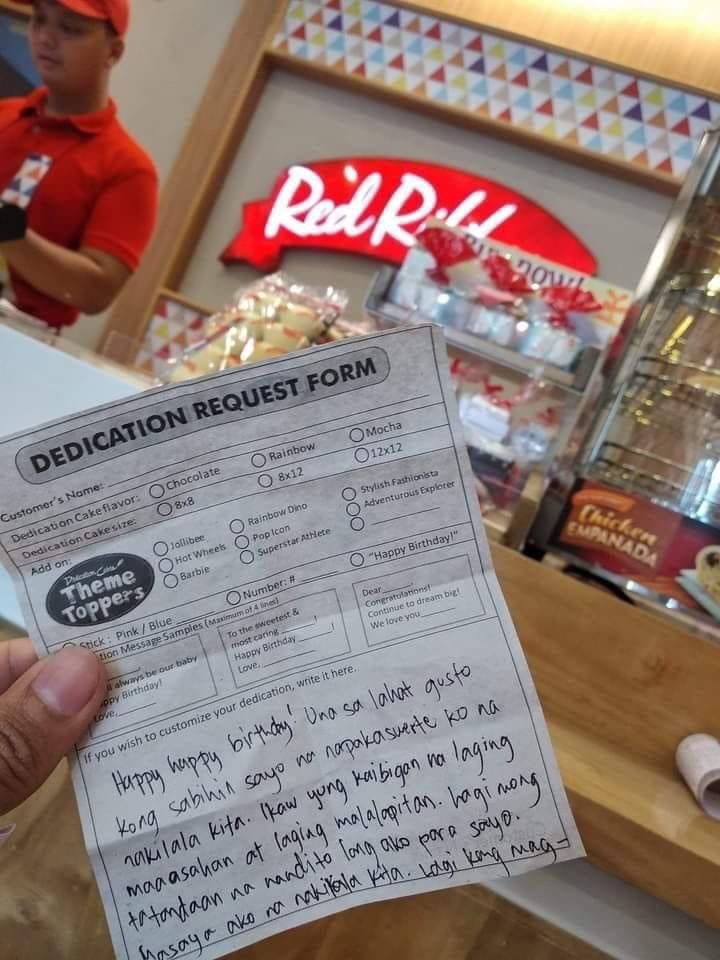 Red Ribb
now!
Chicken
EMPANADA
DEDICATION REQUEST FORM
Customer's Name:
Dedication Cake flavor: Chocolate Rainbow Mocha
Dedication Cake size: 8x8 8x12 12x12
Add on:
Dedication Cake
Theme
Toppers
Jollibee Rainbow Dino Stylish Fashionista
Hot Wheels Pop Icon Adventurous Explorer
Barbie Superstar Athlete
Stick: Pink / Blue Number: # "Happy Birthday!"
tion Message Samples (Maximum of 4 lines)
always be our baby
ppy Birthday!
Love,
To the sweetest &
most caring
Happy Birthday
Love,
Dear
Congratulations!
Continue to dream big!
We love you
If you wish to customize your dedication, write it here.
Happy happy birthday! Una sa lahat gusto
kong sabihin sayo na napakasuerte ko na
nakilala kita. Ikaw yung kaibigan na laging
maaasahan at laging malalapitan. Lagi mong
tatandaan na nandito lang ako para sayo.
masaya ako na nakilala kita. Lagi kang mag-